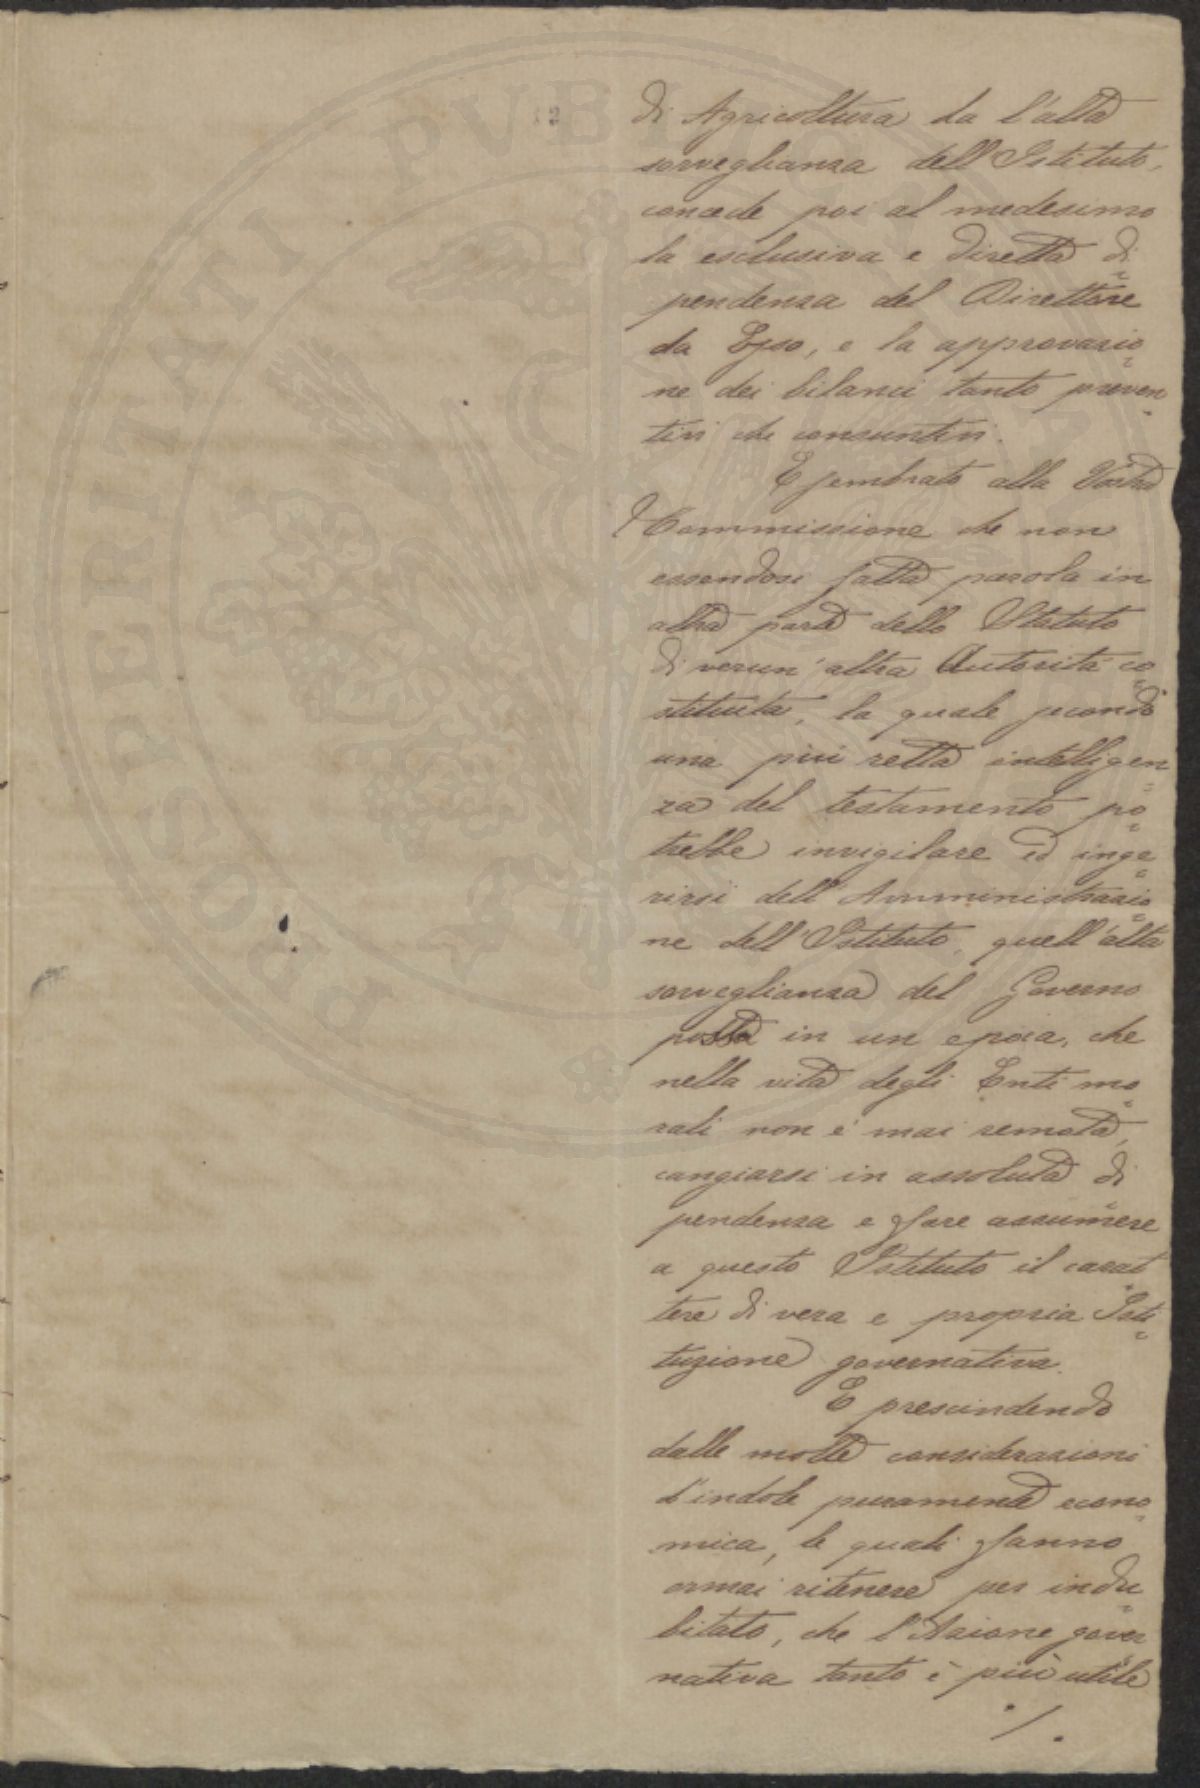 di Agricoltura la l'alta
sorveglianza dell'Istituto,
concede poi al medesimo
la esclusiva e diretta di
pendenza del Direttore
da Esso, e la approvazio
ne dei bilanci tanto preven
tivi che consuntivi.
E sembrato alla Vostra
Commissione che non
essendosi fatta parola in
altra parte dello Statuto
di verun' altra Autorità co
stituita, la quale secondo
una più retta intelligen
za del testamento po
trebbe invigilare ed inge
rirsi dell'Amministrazio
ne dell'Istituto, quell'alta
sorveglianza del Governo
possa in un epoca, che
nella vita degli Enti mo
rali non è mai remota,
cangiarsi in assoluta di
pendenza e fare assumere
a questo Istituto il carat
tere di vera e propria Isti
tuzione governativa.
E prescindendo
dalle molte considerazioni
d'indole puramente econo
mica, le quali fanno
ormai ritenere per indu
bitato, che l'Azione gover
nativa tanto è più utile
./.
PROSPERITATI PUBLICAE